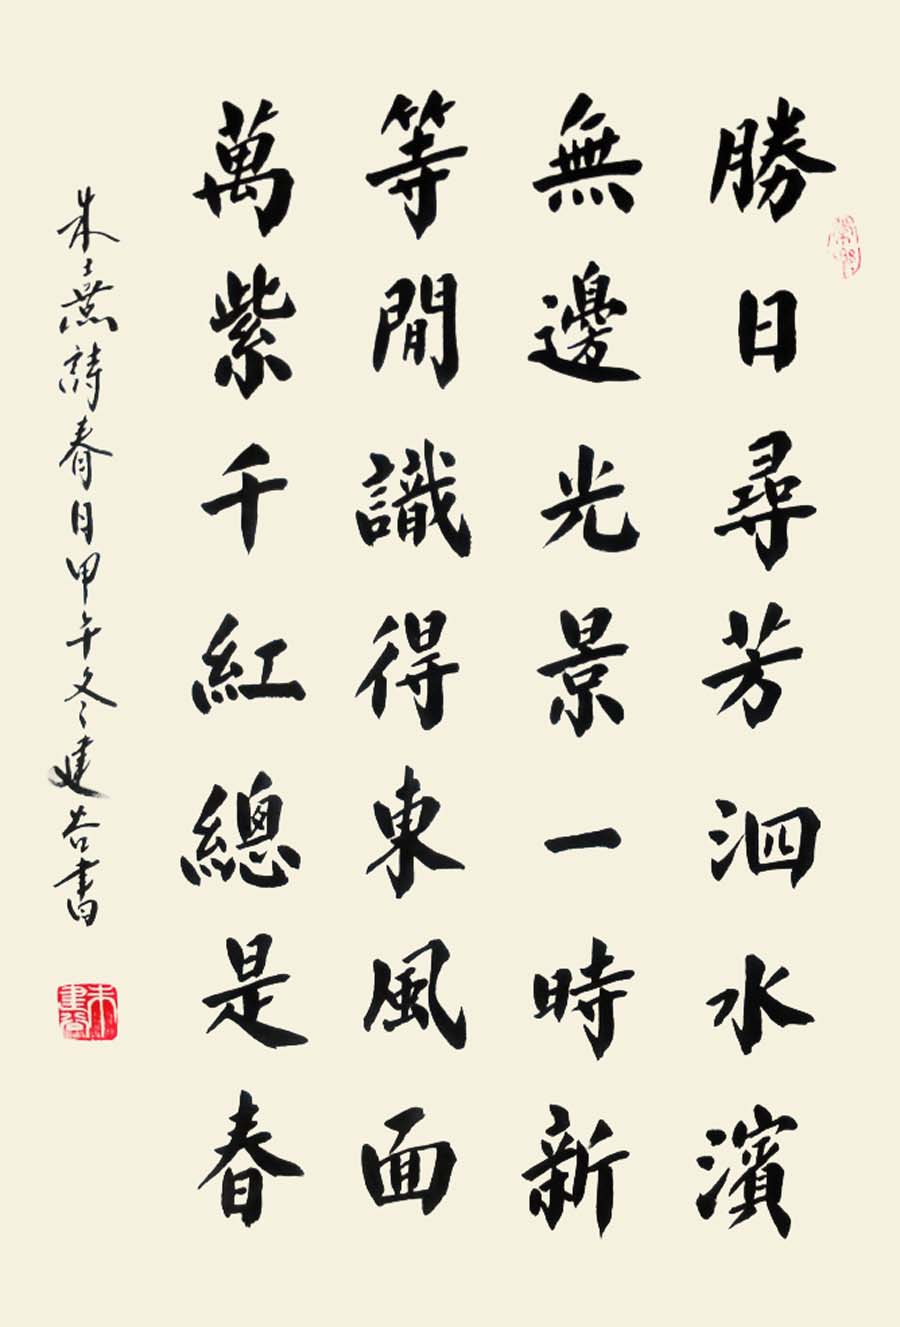 勝日尋芳泗水濱
無邊光景一時新
等閒識得東風面
萬紫千紅總是春
朱熹詩春日甲午冬建谷書